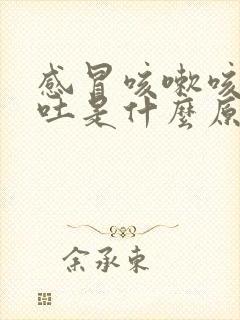 感冒咳嗽咳
吐是什麼原
余承东